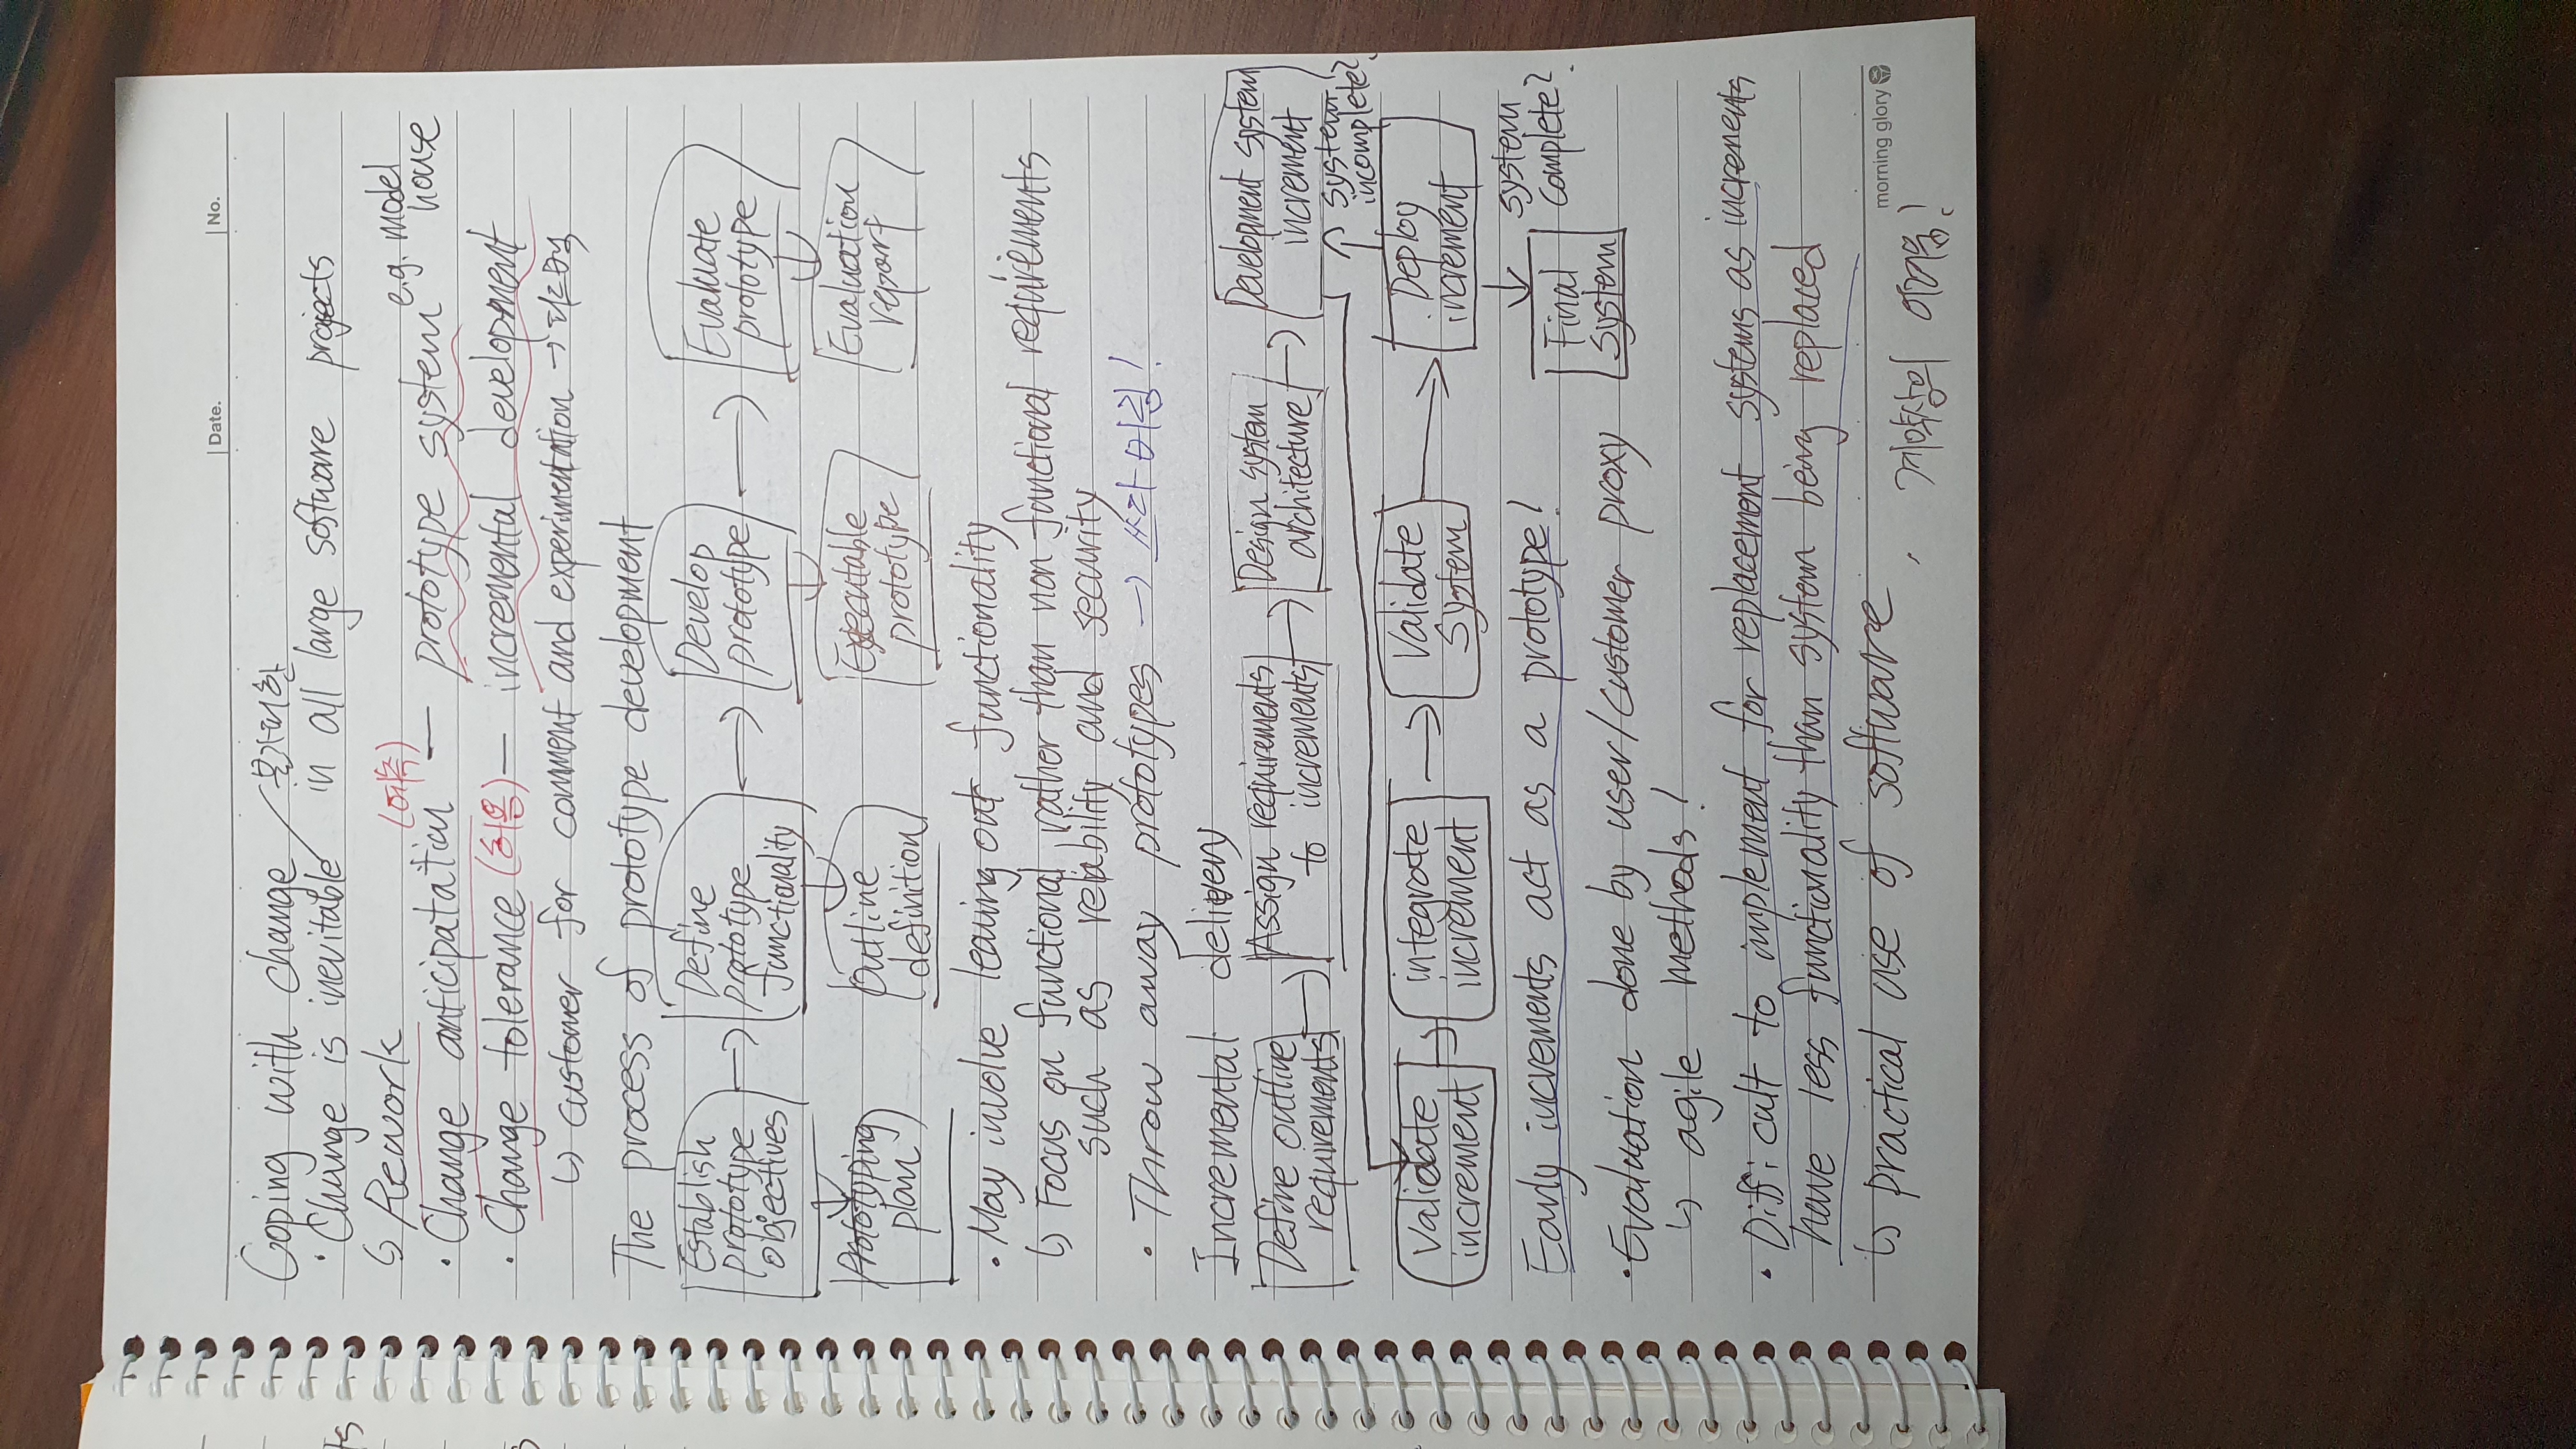 Date. No.
Coping with change 불가피한
· Change is inevitable in all large software projects
↳ Rework
(예측) e.g. model house
· Change anticipatation — prototype system
· Change tolerance (허용) — incremental development
↳ customer for comment and experimentation → 피드백
The process of prototype development
Establish prototype objectives → Define prototype functionality → Develop prototype → Evaluate prototype
Prototyping plan Outline definition Executable prototype Evaluation report
· May involve leaving out functionality
↳ Focus on functional rather than non functional requirements
such as reliability and security
· Throw away prototypes → 쓰고 버림!
Incremental delivery
Define outline requirements → Assign requirements to increments → Design system architecture → Development system increment
system incomplete?
Validate increment → integrate increment → Validate system → Deploy increment
system complete?
Final system
Early increments act as a prototype!
· Evaluation done by user/customer proxy
↳ agile methods!
· Difficult to implement for replacement systems as increments
have less functionality than system being replaced
↳ practical use of software
계약상의 어려움!
morning glory